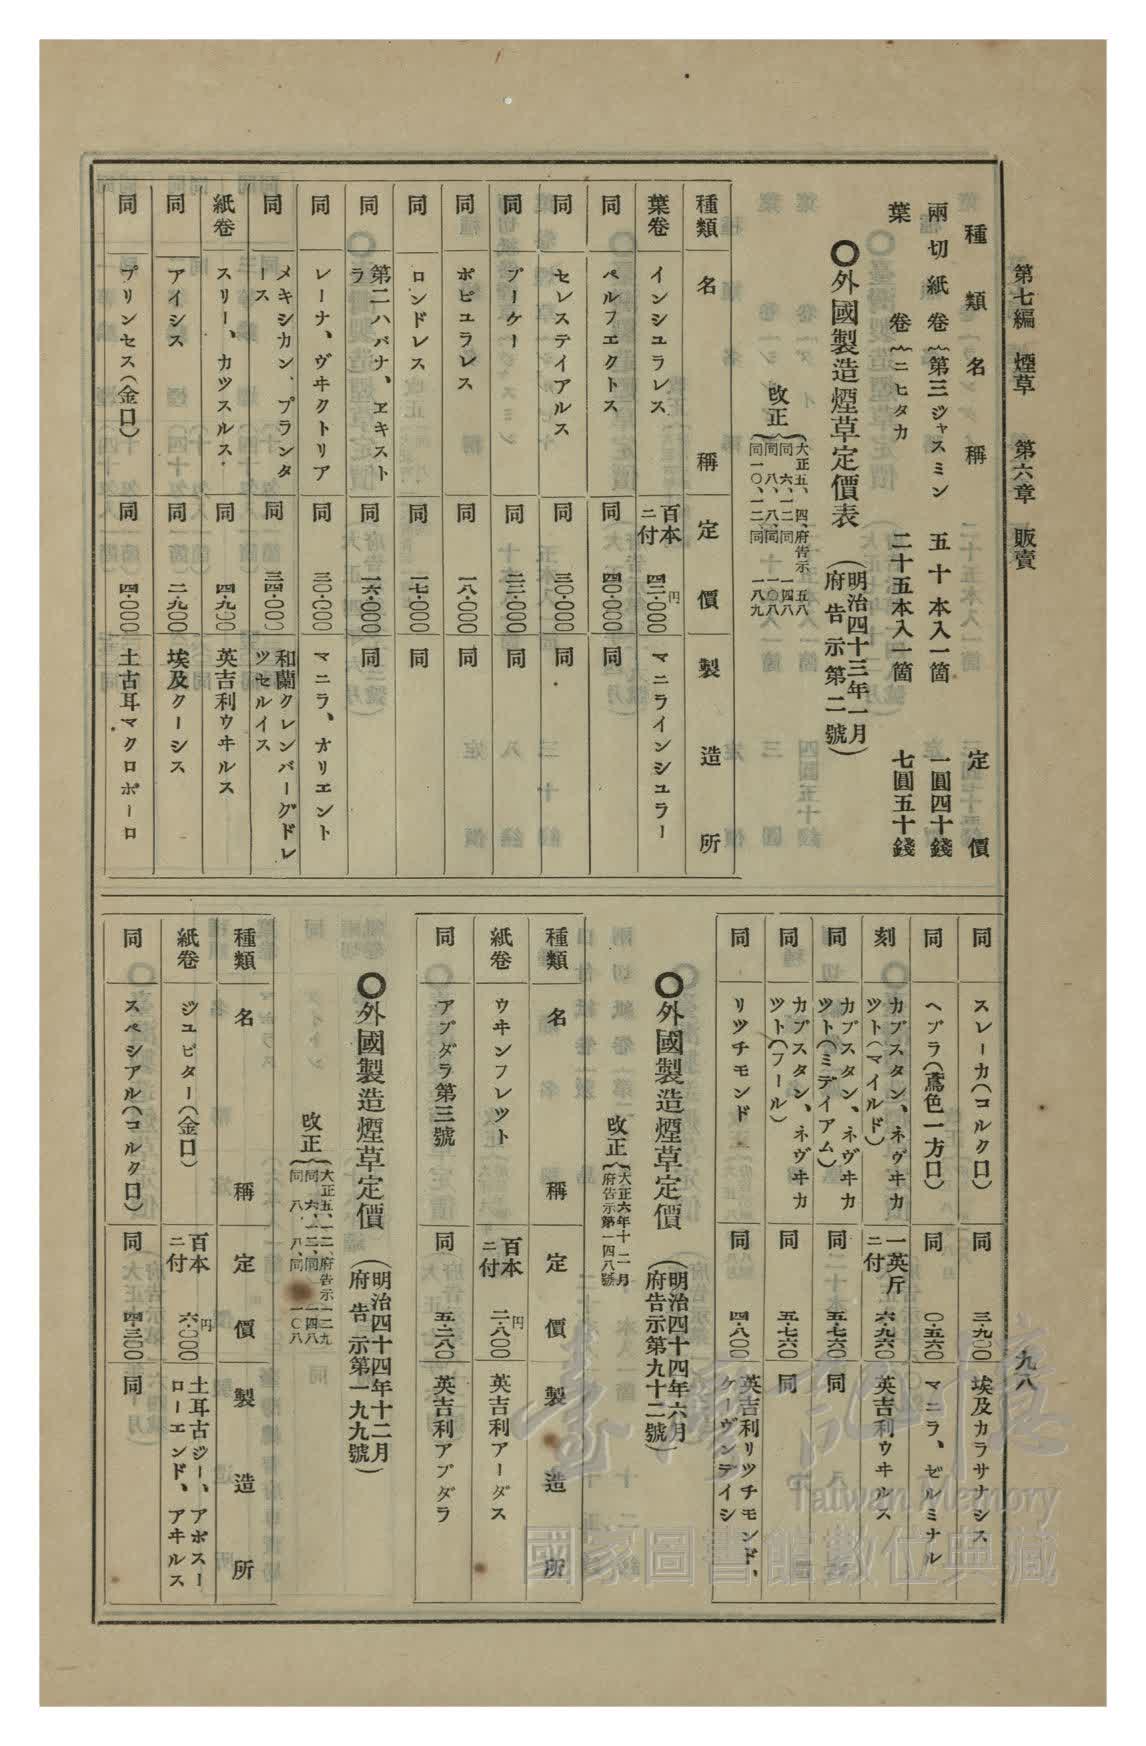 第七編　煙草　　第六章　販賣
九八
種類名稱　定價
兩切紙卷｛第三ジャスミン　五十本入一箇　一圓四十錢
葉卷｛ニヒタカ　二十五本入一箇　七圓五十錢
〇外國製造煙草定價表（明治四十三年一月府告示第二號）
改正｛大正五、四、府告示五八
同六、一二、同一四八
同八、八、同一〇八
同一〇、一二、同一八九
種類　名稱　定價　製造所
葉卷　インシユラレス　百本ニ付　四二・〇〇〇円　マニラインシユラー
同　ペルフエクトス　同　四〇・〇〇〇　同
同　セレステイアルス　同　三〇・〇〇〇　同
同　ブーケー　同　二二・〇〇〇　同
同　ポピユラレス　同　一八・〇〇〇　同
同　ロンドレス　同　一七・〇〇〇　同
同　第二ハバナ、エキストラ　同　一六・〇〇〇　同
同　レーナ、ヴヰクトリア　同　三〇・〇〇〇　マニラ、オリエント
同　メキシカン、プランタース　同　三四・〇〇〇　和蘭クレンバーグドレツセルイス
紙卷　スリー、カツスルス　同　四・九〇〇　英吉利ウヰルス
同　アイシス　同　二・九〇〇　埃及クーシス
同　プリンセス（金口）　同　四・〇〇〇　土古耳マクロポーロ
同　スレーカ（コルク口）　同　三・九〇〇　埃及カラサナシス
同　ヘブラ（鳶色一方口）　同　〇・五六〇　マニラ、ゼルミナル
刻　カプスタン、ネヴヰカツト（マイルド）　一英斤ニ付　六・九六〇　英吉利ウヰルス
同　カプスタン、ネヴヰカツト（ミデイアム）　同　五・七六〇　同
同　カプスタン、ネヴヰカツト（フール）　同　五・七六〇　同
同　リツチモンド　同　四・八〇〇　英吉利リツチモンド、ケーヴンデイシ
〇外國製造煙草定價（明治四十四年六月府告示第九十二號）
改正｛大正六年十二月府告示第一四八號
種類　名稱　定價　製造所
紙卷　ウヰンフレツト　百本ニ付　二・八〇〇円　英吉利アーダス
同　アブダラ第三號　同　五・二八〇　英吉利アブダラ
〇外國製造煙草定價（明治四十四年十二月府告示第一九九號）
改正｛大正五、一二、府告示一二九
同六、一二、同一四八
同八、八、同一〇八
種類　名稱　定價　製造所
紙卷　ジユピター（金口）　百本ニ付　六・〇〇〇円　土耳古ジー、アポスーローエンド、アヰルス
同　スペシアル（コルク口）　同　四・三〇〇　同
臺灣記憶
Taiwan Memory
國家圖書館數位典藏